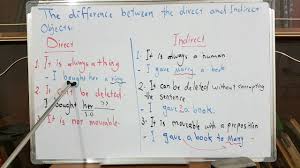 The difference between the direct and Indirect
Objects:
Direct
1. It is always a thing
- I bought her a ring
2. It be deleted
I bought her ??
I.O
3. It is not movable
Indirect
1. It is always a human
- I gave Marry a book
2. It can be deleted without corrupting
the sentence
- I gave a book.
3. It is movable with a preposition
- I gave a book to Marry